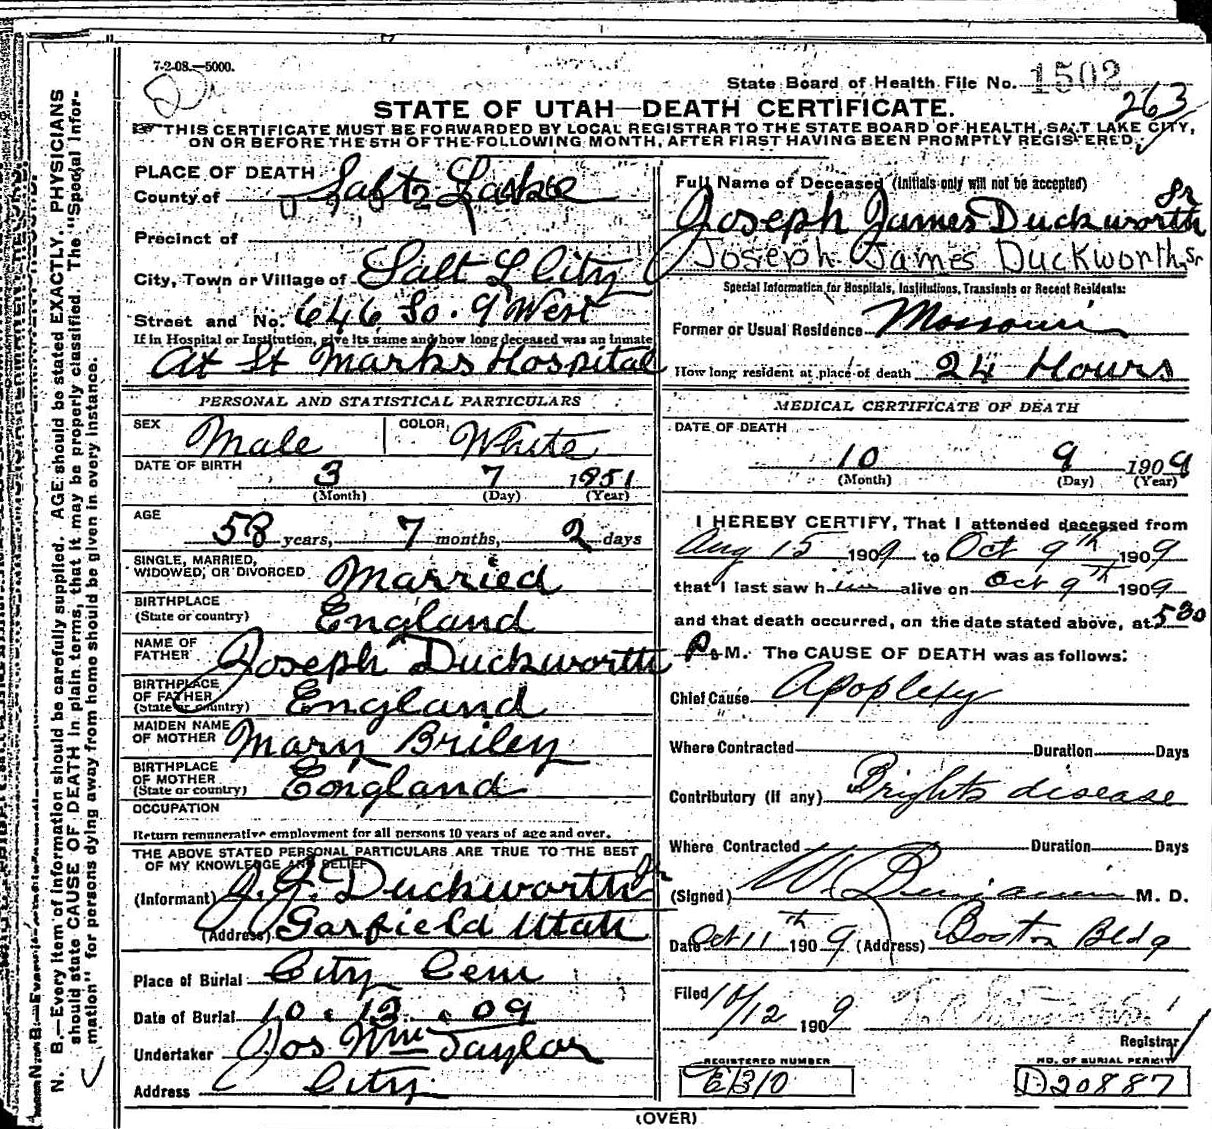 7-2-08.—5000.
State Board of Health File No. 1502
263
STATE OF UTAH—DEATH CERTIFICATE.
THIS CERTIFICATE MUST BE FORWARDED BY LOCAL REGISTRAR TO THE STATE BOARD OF HEALTH, SALT LAKE CITY,
ON OR BEFORE THE 5TH OF THE FOLLOWING MONTH, AFTER FIRST HAVING BEEN PROMPTLY REGISTERED.
N. B.—Every item of information should be carefully supplied. AGE should be stated EXACTLY. PHYSICIANS
should state CAUSE OF DEATH in plain terms, that it may be properly classified. The "Special Infor-
mation" for persons dying away from home should be given in every instance.
PLACE OF DEATH
County of Salt Lake
Precinct of
City, Town or Village of Salt L City
Street and No. 646 So. 9 West
If in Hospital or Institution, give its name and how long deceased was an inmate
At St Marks Hospital
PERSONAL AND STATISTICAL PARTICULARS
SEX Male COLOR White
DATE OF BIRTH 3 7 1851
(Month) (Day) (Year)
AGE 58 years, 7 months, 2 days
SINGLE, MARRIED,
WIDOWED, OR DIVORCED Married
BIRTHPLACE
(State or country) England
NAME OF
FATHER Joseph Duckworth
BIRTHPLACE
OF FATHER
(State or country) England
MAIDEN NAME
OF MOTHER Mary Briley
BIRTHPLACE
OF MOTHER
(State or country) England
OCCUPATION
Return remunerative employment for all persons 10 years of age and over.
THE ABOVE STATED PERSONAL PARTICULARS ARE TRUE TO THE BEST
OF MY KNOWLEDGE AND BELIEF
(Informant) J. J. Duckworth Jr
(Address) Garfield Utah
Place of Burial City Cem
Date of Burial 10. 12. 09
Undertaker Jos Wm Taylor
Address City
Full Name of Deceased (Initials only will not be accepted)
Joseph James Duckworth Sr
Joseph James Duckworth, Sr
Special Information for Hospitals, Institutions, Transients or Recent Residents:
Former or Usual Residence Missouri
How long resident at place of death 24 Hours
MEDICAL CERTIFICATE OF DEATH
DATE OF DEATH
10 9 1909
(Month) (Day) (Year)
I HEREBY CERTIFY, That I attended deceased from
Aug 15 1909 to Oct 9th 1909
that I last saw him alive on Oct 9th 1909
and that death occurred, on the date stated above, at 530
P. M. The CAUSE OF DEATH was as follows:
Chief Cause Apoplexy
Where Contracted Duration Days
Contributory (If any) Brights disease
Where Contracted Duration Days
(Signed) W. Benjamin M. D.
Date Oct 11th 1909 (Address) Boston Bldg
Filed 10/12 1909
Registrar
REGISTERED NUMBER
E310
NO. OF BURIAL PERMIT
D20887
(OVER)